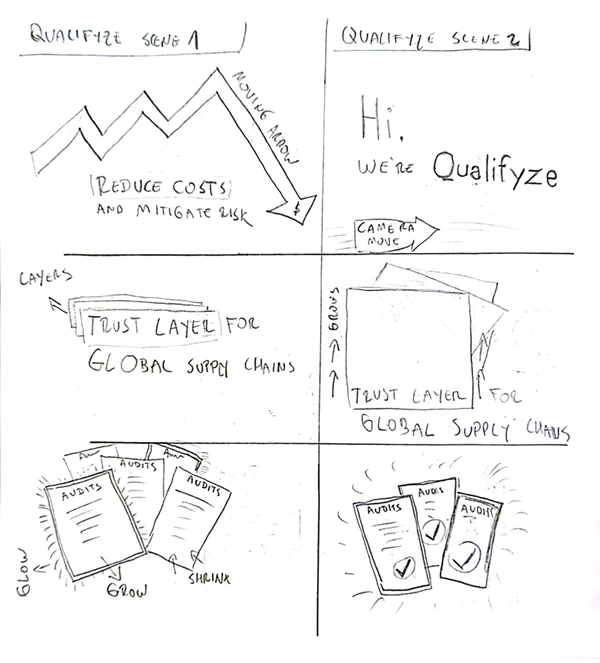 QUALIFYZE SCENE 1
QUALIFYZE SCENE 2
MOVING ARROW
REDUCE COSTS
AND MITIGATE RISK
$
Hi,
WE'RE Qualifyze
CAMERA
MOVE
LAYERS
TRUST LAYER FOR
GLOBAL SUPPLY CHAINS
GROWS
TRUST LAYER FOR
GLOBAL SUPPLY CHANS
AUDITS
AUDITS
AUDITS
GLOW
GROW
SHRINK
AUDITS
AUDIS
AUDIT